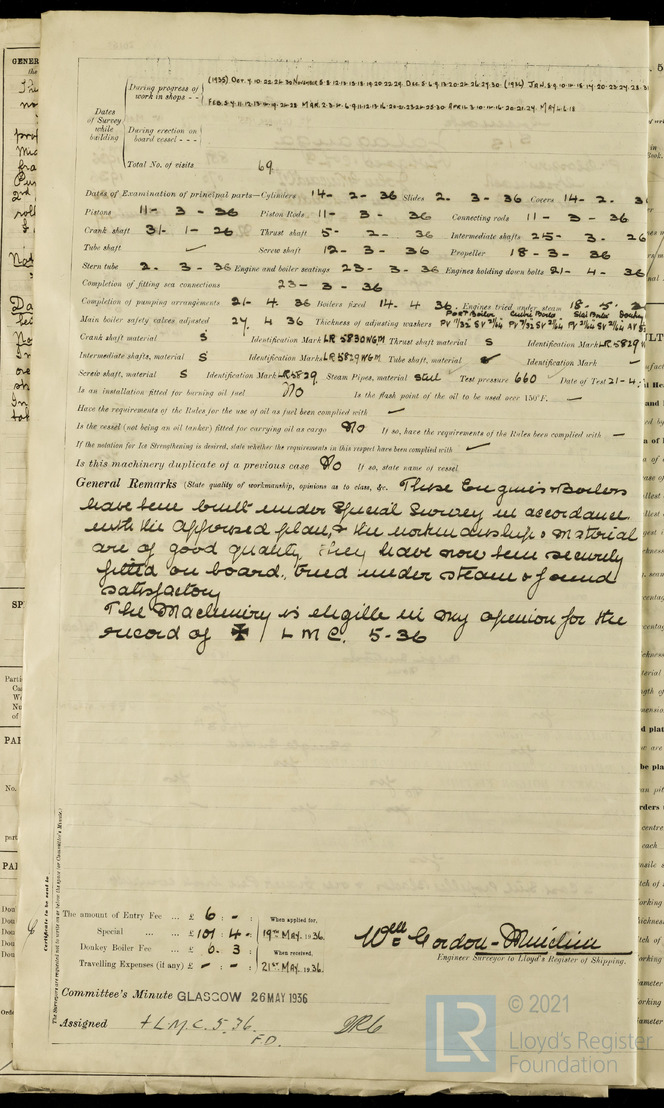 Dates of Survey while building
During progress of work in shops - -
(1935) Oct. 9. 10. 22. 24. 30 November 5. 8. 12. 13. 15. 18. 19. 20. 22. 29. Dec. 5. 6. 9. 13. 20. 24. 26. 27. 30. (1936) Jan. 8. 9. 10. 14.
Feb. 5. 7. 11. 12. 13. Mar. 2. 3. April 2. 3. 10. May 4. 6. 18
During erection on board vessel - - -
Total No. of visits 69.
Dates of Examination of principal parts—Cylinders 14 - 2 - 36 Slides 2 - 3 - 36 Covers 14 - 2 -
Pistons 11 - 3 - 36 Piston Rods 11 - 3 - 36 Connecting rods 11 - 3 - 36
Crank shaft 31 - 1 - 26 Thrust shaft 5 - 2 - 36 Intermediate shafts 25 - 3 - 26
Tube shaft ✓ Screw shaft 12 - 3 - 36 Propeller 18 - 3 - 36
Stern tube 2 - 3 - 36 Engine and boiler seatings 23 - 3 - 36 Engines holding down bolts 21 - 4 - 36
Completion of fitting sea connections 23 - 3 - 36
Completion of pumping arrangements 21 - 4 36 Boilers fixed 14 - 4. 36 Engines tried under steam 18 - 5
Port Boiler Centre Boiler Stbd Boiler
Main boiler safety valves adjusted 27. 4 36 Thickness of adjusting washers
Crank shaft material S Identification Mark LR 5830 WGM Thrust shaft material S Identification Mark LR 5829
Intermediate shafts, material S Identification Marks LR 5829 WGM Tube shaft, material ✓ Identification Mark —
Screw shaft, material S Identification Mark LR 5829 Steam Pipes, material steel Test pressure 660 Date of Test 21-4-
Is an installation fitted for burning oil fuel No Is the flash point of the oil to be used over 150°F. —
Have the requirements of the Rules for the use of oil as fuel been complied with ✓
Is the vessel (not being an oil tanker) fitted for carrying oil as cargo No If so, have the requirements of the Rules been complied with —
If the notation for Ice Strengthening is desired, state whether the requirements in this respect have been complied with ✓
Is this machinery duplicate of a previous case No If so, state name of vessel
General Remarks (State quality of workmanship, opinions as to class, &c. These Engines & Boilers
have been built under Special Survey in accordance
with the approved plans, & the workmanship & material
are of good quality they have now been securely
fitted on board, tried under steam & found
satisfactory
The Machinery is eligible in my opinion for the
record of ✠ L M C. 5-36
The amount of Entry Fee ... £ 6 : - : When applied for,
Special ... £ 101 : 4 - : 19th May. 1936.
Donkey Boiler Fee ... £ 6 . 3 : When received,
Travelling Expenses (if any) £ - : - : 21st May. 1936.
Wm Gordon-Municin
Engineer Surveyor to Lloyd's Register of Shipping.
Committee's Minute GLASGOW 26 MAY 1936
Assigned + L.M.C. 5.36.
F.D.
Certificate to be sent to
The Surveyors are requested not to write on or below the space for Committee's Minute.
© 2021
LR
Lloyd's Register
Foundation